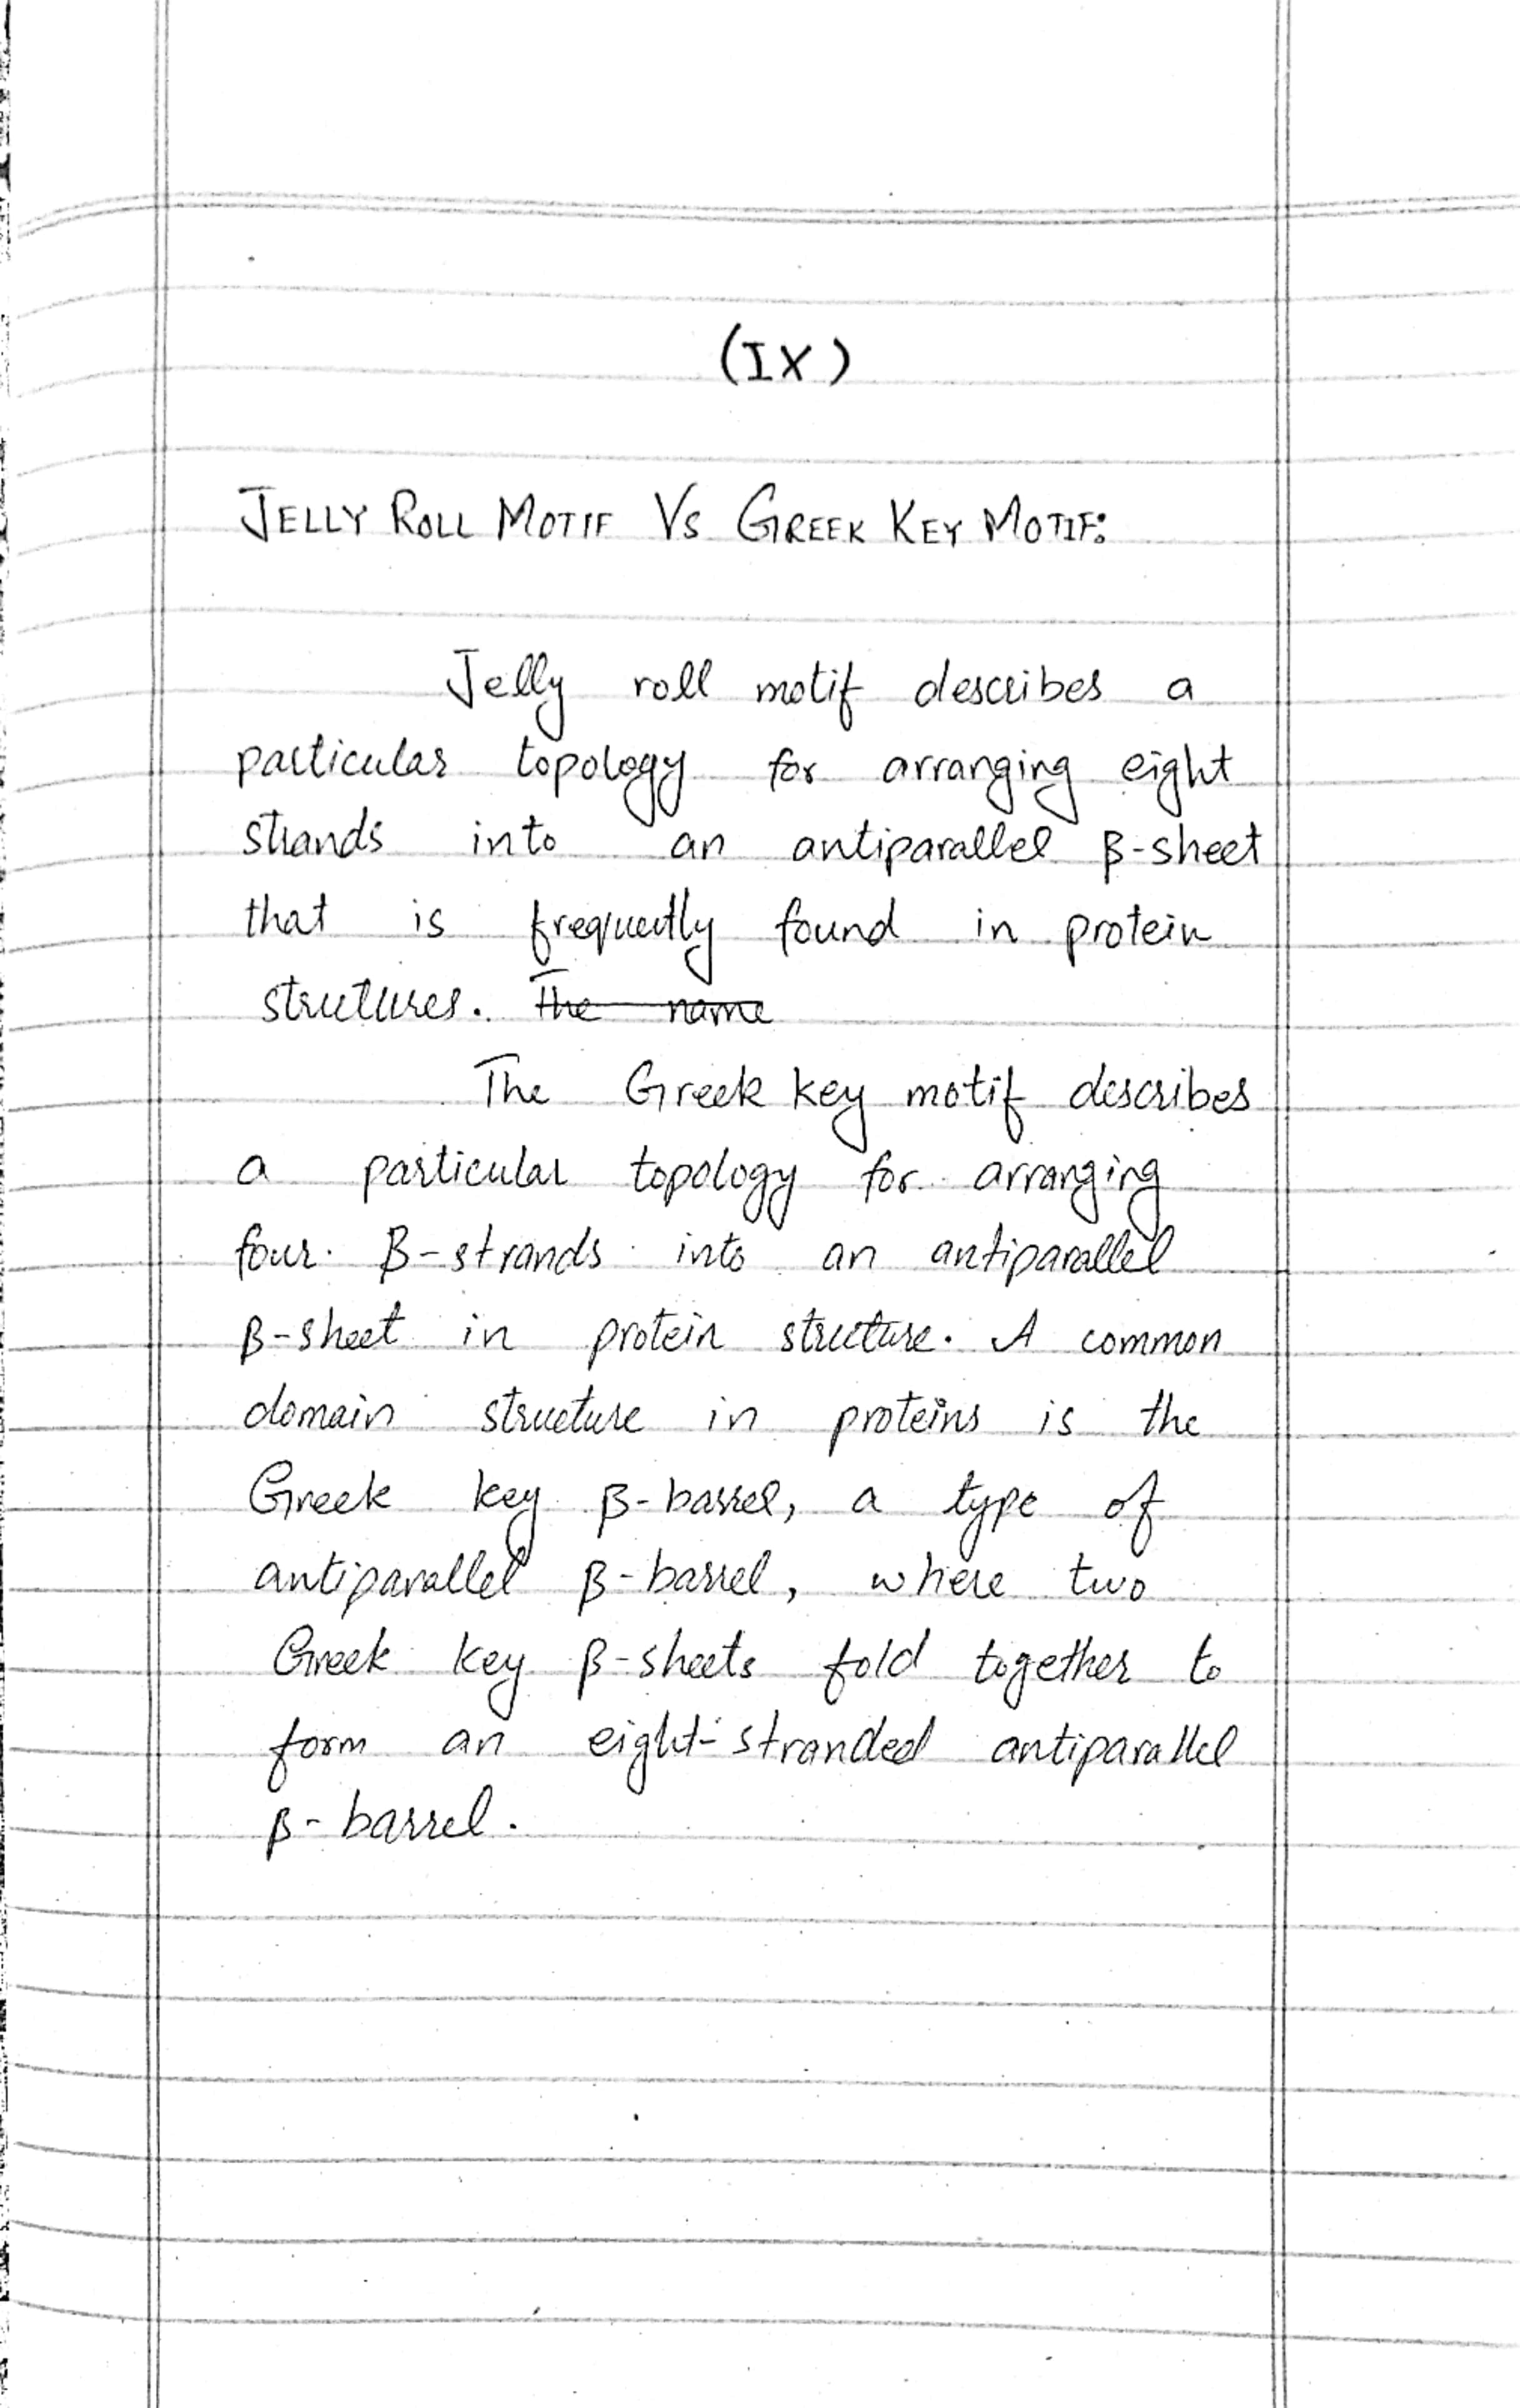 (IX)
JELLY ROLL MOTIF VS GREEK KEY MOTIF:
Jelly roll motif describes a
particular topology for arranging eight
strands into an antiparallel β-sheet
that is frequently found in protein
structures. The name
The Greek key motif describes
a particular topology for arranging
four β-strands into an antiparallel
β-sheet in protein structure. A common
domain structure in proteins is the
Greek key β-barrel, a type of
antiparallel β-barrel, where two
Greek key β-sheets fold together to
form an eight-stranded antiparallel
β-barrel.